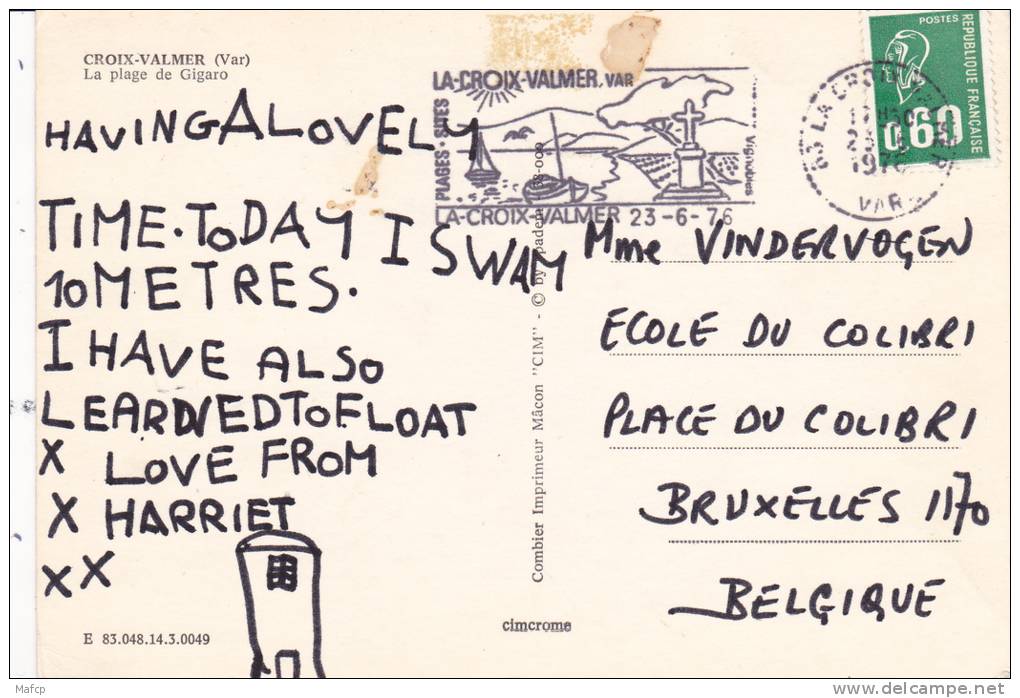 CROIX-VALMER (Var)
La plage de Gigaro
HAVING A LOVELY
TIME. TODAY I SWAM
10 METRES.
I HAVE ALSO
LEARDNED TO FLOAT
X LOVE FROM
X HARRIET
X X
E 83.048.14.3.0049
LA-CROIX-VALMER, VAR
PLAGES - SITES
Vignobles
LA-CROIX-VALMER 23-6-76
Combier Imprimeur Mâcon "CIM" - © by
cimcrome
POSTES
REPUBLIQUE FRANÇAISE
0,60
83 LA CROIX VALMER
VAR
Mme VINDERVOGEN
ECOLE DU COLIBRI
PLACE DU COLIBRI
BRUXELLES 1170
BELGIQUE
Mafcp
www.delcampe.net